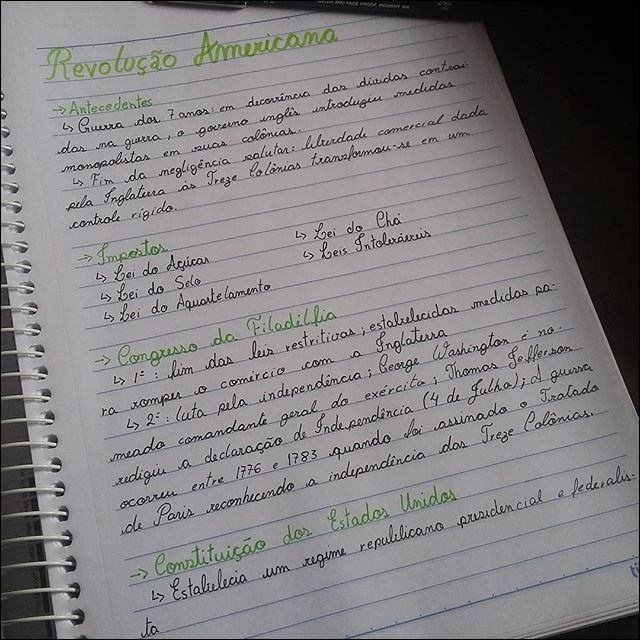 WATER AND FADE PROOF, PIGMENT INK
Revolução Americana
→ Antecedentes
↳ Guerra dos 7 anos: em decorrência das dívidas contraí-
das na guerra, o governo inglês introduziu medidas
monopolistas em suas colônias.
↳ Fim da negligência salutar: liberdade comercial dada
pela Inglaterra às Treze Colônias transformou-se em um
controle rígido.
→ Impostos
↳ Lei do Açúcar
↳ Lei do Selo
↳ Lei do Aquartelamento
↳ Lei do Chá
↳ Leis Intoleráveis
→ Congresso da Filadélfia
↳ 1º: fim das leis restritivas; estabelecidas medidas pa-
ra romper o comércio com a Inglaterra
↳ 2º: luta pela independência; George Washington é no-
meado comandante geral do exército; Thomas Jefferson
redigiu a declaração de Independência (4 de Julho); A guerra
ocorreu entre 1776 e 1783 quando foi assinado o Tratado
de Paris reconhecendo a independência das Treze Colônias.
→ Constituição dos Estados Unidos
↳ Estabelecia um regime republicano presidencial e federalis-
ta